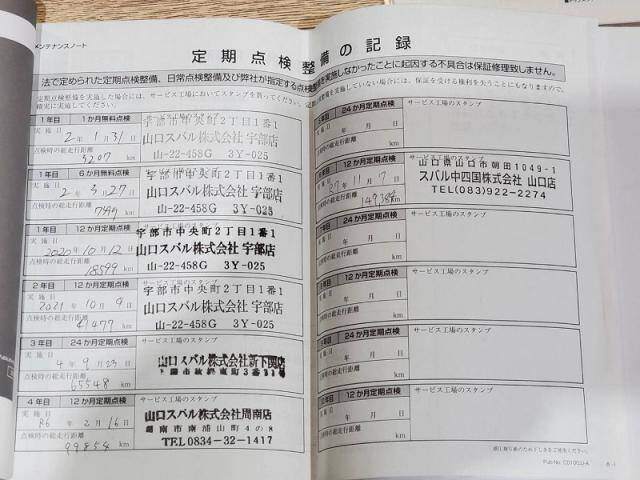 メンテナンスノート
定期点検整備の記録
法で定められた定期点検整備、日常点検整備及び弊社が指定する点検整備を実施しなかったことに起因する不具合は保証修理致しません。
定期点検整備を実施した場合には、サービス工場においてスタンプを貰ってください。
確実に実施してください。
1年目 1か月無料点検
実施日
2年1月31日
点検時の総走行距離
5207 km
宇部市中央町2丁目1番1
山口スバル株式会社 宇部店
山-22-458G 3Y-025
1年目 6か月無料点検
実施日
2年3月27日
点検時の総走行距離
km
宇部市中央町2丁目1番1
山口スバル株式会社 宇部店
山-22-458G 3Y-025
1年目 12か月定期点検
実施日
2020年10月12日
点検時の総走行距離
18599 km
宇部市中央町2丁目1番1
山口スバル株式会社 宇部店
山-22-458G 3Y-025
2年目 12か月定期点検
サービス工場のスタンプ
実施日
2021年10月9日
点検時の総走行距離
41477 km
宇部市中央町2丁目1番1
山口スバル株式会社 宇部店
山-22-458G 3Y-025
3年目 24か月定期点検
サービス工場のスタンプ
実施日
4年9月23日
点検時の総走行距離
65548 km
山口スバル株式会社新下関店
4年目 12か月定期点検
サービス工場のスタンプ
実施日
R6年2月16日
点検時の総走行距離
99854 km
山口スバル株式会社周南店
周南市南浦山町4の8
TEL0834-32-1417
24か月定期点検
サービス工場のスタンプ
年 月 日
km
12か月定期点検
27年11月7日
149388 km
山口県山口市朝田1049-1
スバル中四国株式会社 山口店
TEL(083)922-2274
24か月定期点検
サービス工場のスタンプ
年 月 日
km
12か月定期点検
サービス工場のスタンプ
年 月 日
km
24か月定期点検
サービス工場のスタンプ
年 月 日
km
12か月定期点検
サービス工場のスタンプ
年 月 日
km